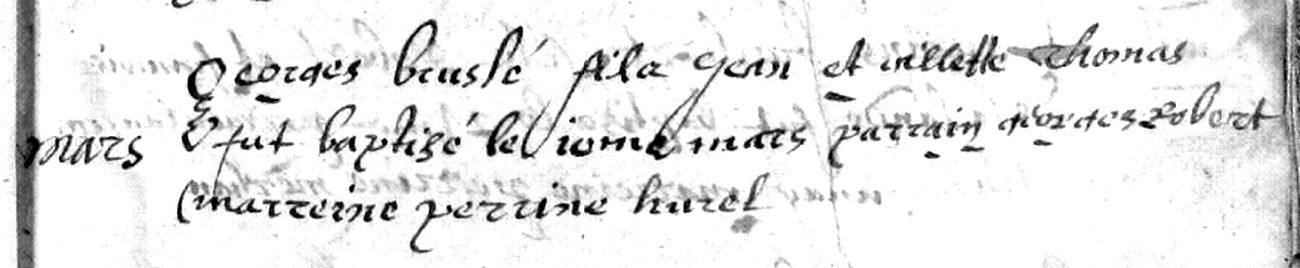 Georges bruslé fils Jean et villette Thomas
mars fut baptizé le mars parrain georges Robert
marreine perrine hurel